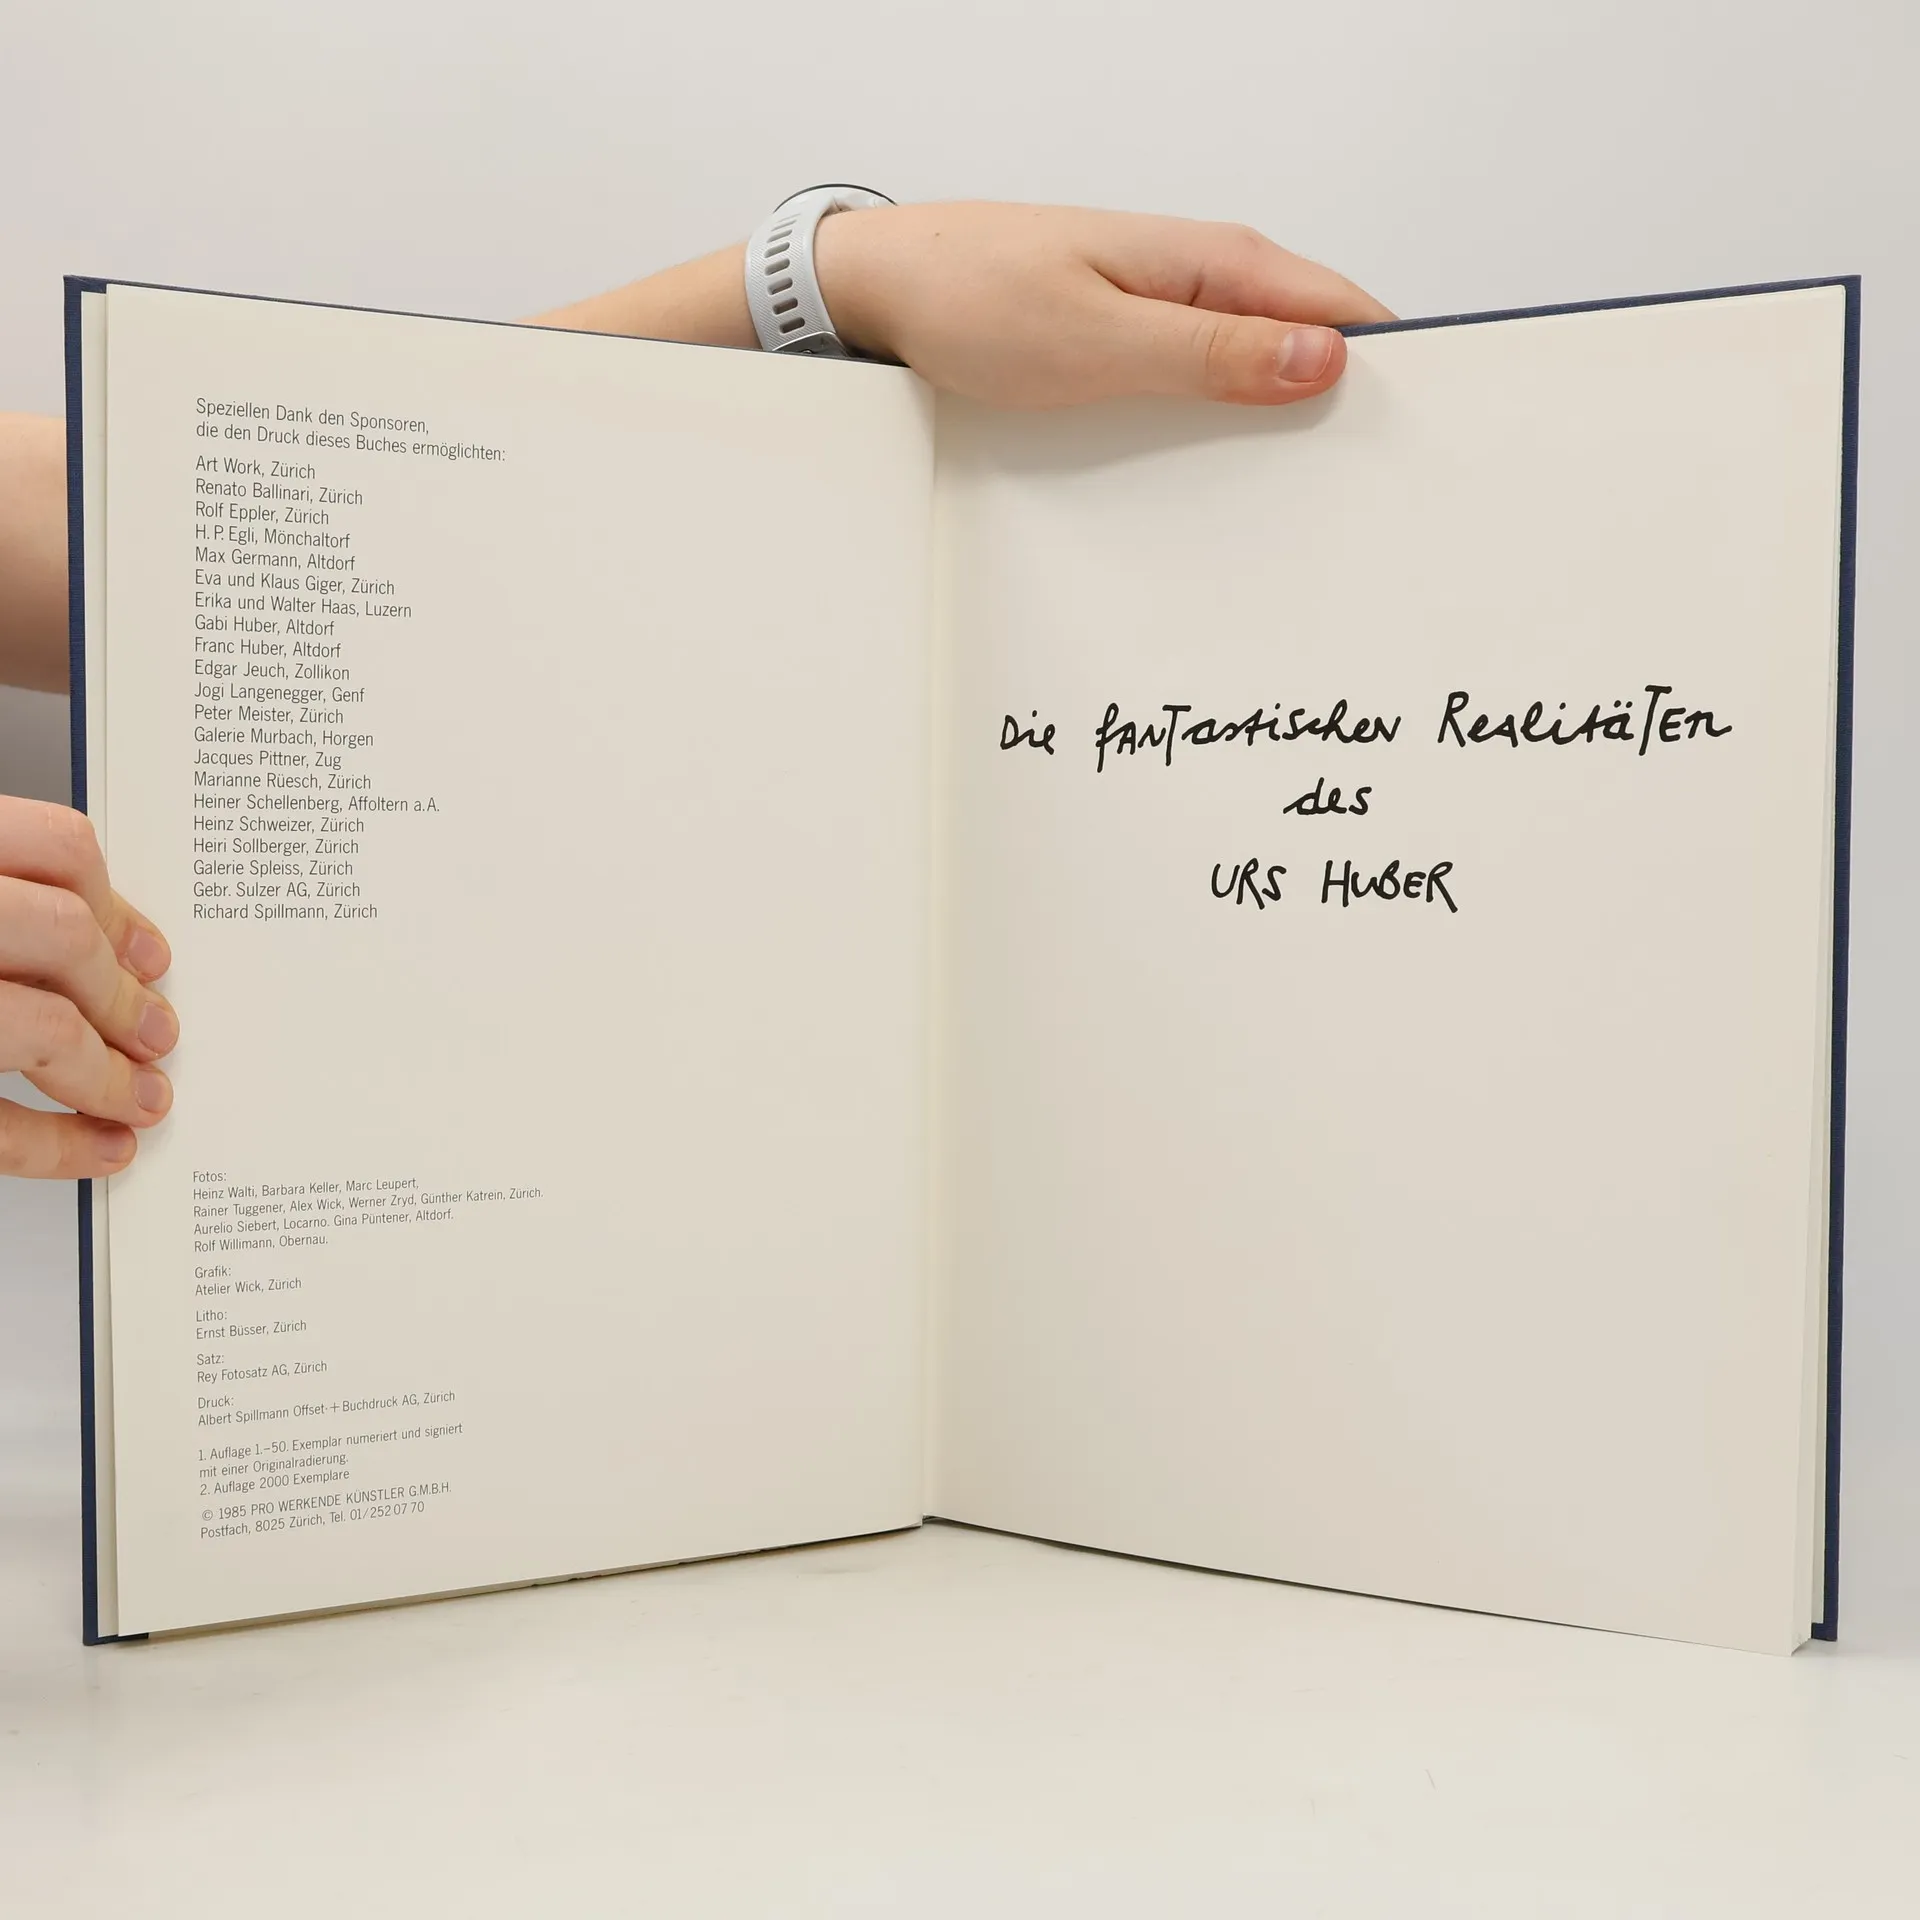 Speziellen Dank den Sponsoren,
die den Druck dieses Buches ermöglichten:
Art Work, Zürich
Renato Ballinari, Zürich
Rolf Eppler, Zürich
H. P. Egli, Mönchaltorf
Max Germann, Altdorf
Eva und Klaus Giger, Zürich
Erika und Walter Haas, Luzern
Gabi Huber, Altdorf
Franc Huber, Altdorf
Edgar Jeuch, Zollikon
Jogi Langenegger, Genf
Peter Meister, Zürich
Galerie Murbach, Horgen
Jacques Pittner, Zug
Marianne Rüesch, Zürich
Heiner Schellenberg, Affoltern a.A.
Heinz Schweizer, Zürich
Heiri Sollberger, Zürich
Galerie Spleiss, Zürich
Gebr. Sulzer AG, Zürich
Richard Spillmann, Zürich
Fotos:
Heinz Walti, Barbara Keller, Marc Leupert,
Rainer Tuggener, Alex Wick, Werner Zryd, Günther Katrein, Zürich.
Aurelio Siebert, Locarno. Gina Püntener, Altdorf.
Rolf Willimann, Obernau.
Grafik:
Atelier Wick, Zürich
Litho:
Ernst Büsser, Zürich
Satz:
Rey Fotosatz AG, Zürich
Druck:
Albert Spillmann Offset-+Buchdruck AG, Zürich
1. Auflage 1.–50. Exemplar numeriert und signiert
mit einer Originalradierung.
2. Auflage 2000 Exemplare
© 1985 PRO WERKENDE KÜNSTLER G.M.B.H.
Postfach, 8025 Zürich, Tel. 01/252 07 70
Die fANTastischen RealitäTEn
des
URS HUBER